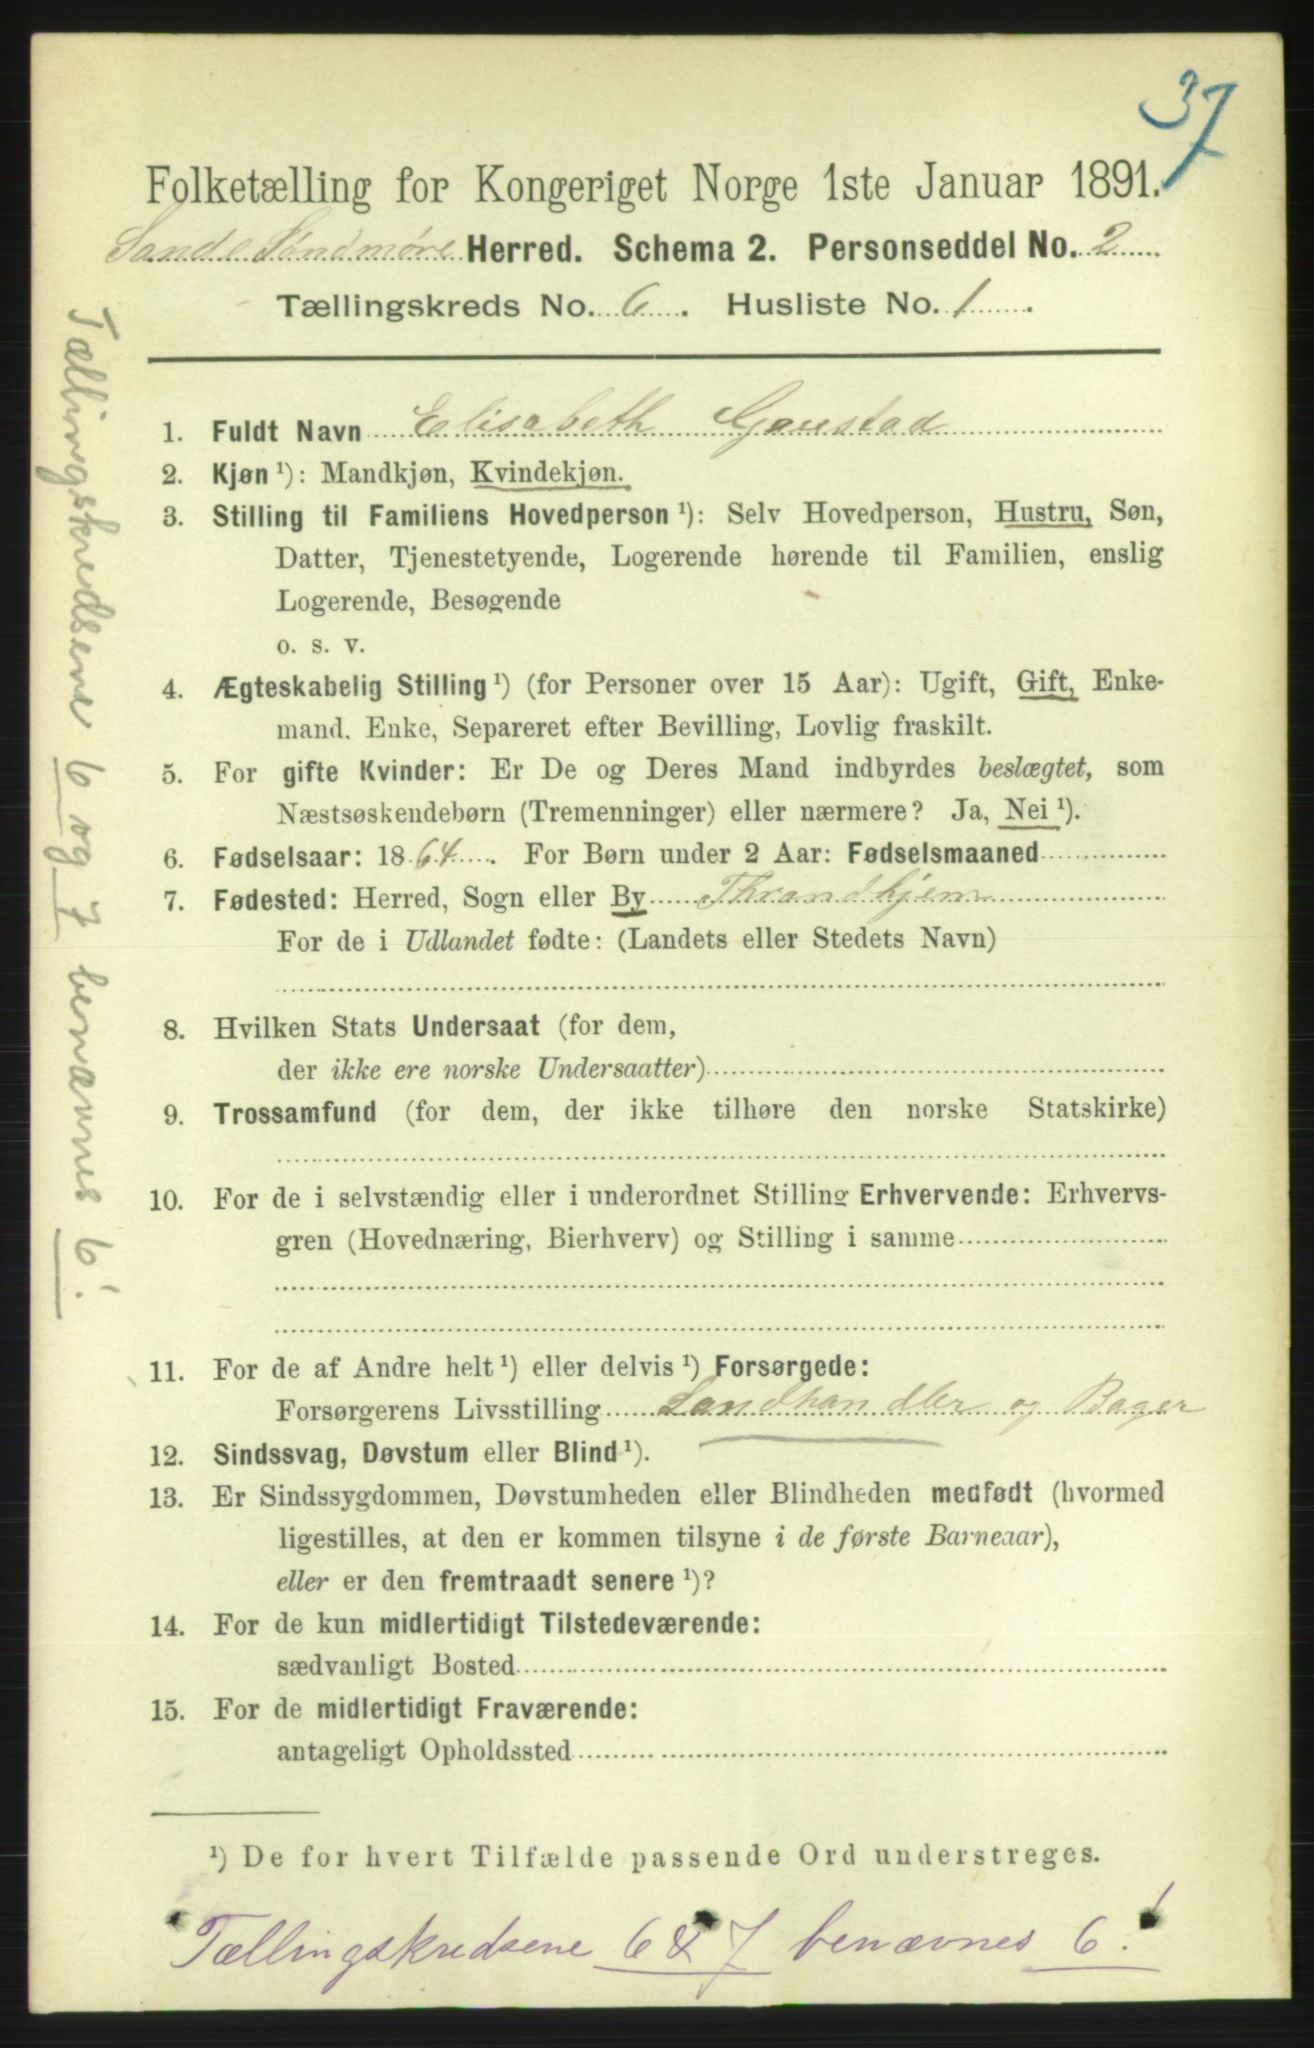 37
Folketælling for Kongeriget Norge 1ste Januar 1891.
Sande Søndmøre Herred. Schema 2. Personseddel No. 2
Tællingskreds No. 6. Husliste No. 1.
1. Fuldt Navn Elisabeth Gaustad
2. Kjøn ¹): Mandkjøn, Kvindekjøn.
3. Stilling til Familiens Hovedperson ¹): Selv Hovedperson, Hustru, Søn,
Datter, Tjenestetyende, Logerende hørende til Familien, enslig
Logerende, Besøgende
o. s. v.
4. Ægteskabelig Stilling ¹) (for Personer over 15 Aar): Ugift, Gift, Enke-
mand. Enke, Separeret efter Bevilling, Lovlig fraskilt.
5. For gifte Kvinder: Er De og Deres Mand indbyrdes beslægtet, som
Næstsøskendebørn (Tremenninger) eller nærmere? Ja, Nei ¹).
6. Fødselsaar: 1864. For Børn under 2 Aar: Fødselsmaaned
7. Fødested: Herred, Sogn eller By Thrandhjem
For de i Udlandet fødte: (Landets eller Stedets Navn)
8. Hvilken Stats Undersaat (for dem,
der ikke ere norske Undersaatter)
9. Trossamfund (for dem, der ikke tilhøre den norske Statskirke)
10. For de i selvstændig eller i underordnet Stilling Erhvervende: Erhvervs-
gren (Hovednæring, Bierhverv) og Stilling i samme
11. For de af Andre helt ¹) eller delvis ¹) Forsørgede:
Forsørgerens Livsstilling Landhandler og Bager
12. Sindssvag, Døvstum eller Blind ¹).
13. Er Sindssygdommen, Døvstumheden eller Blindheden medfødt (hvormed
ligestilles, at den er kommen tilsyne i de første Barneaar),
eller er den fremtraadt senere ¹)?
14. For de kun midlertidigt Tilstedeværende:
sædvanligt Bosted
15. For de midlertidigt Fraværende:
antageligt Opholdssted
¹) De for hvert Tilfælde passende Ord understreges.
Tællingskredsene 6 & 7 benævnes 6!
Tællingskredsene 6 og 7 benævnes 6!